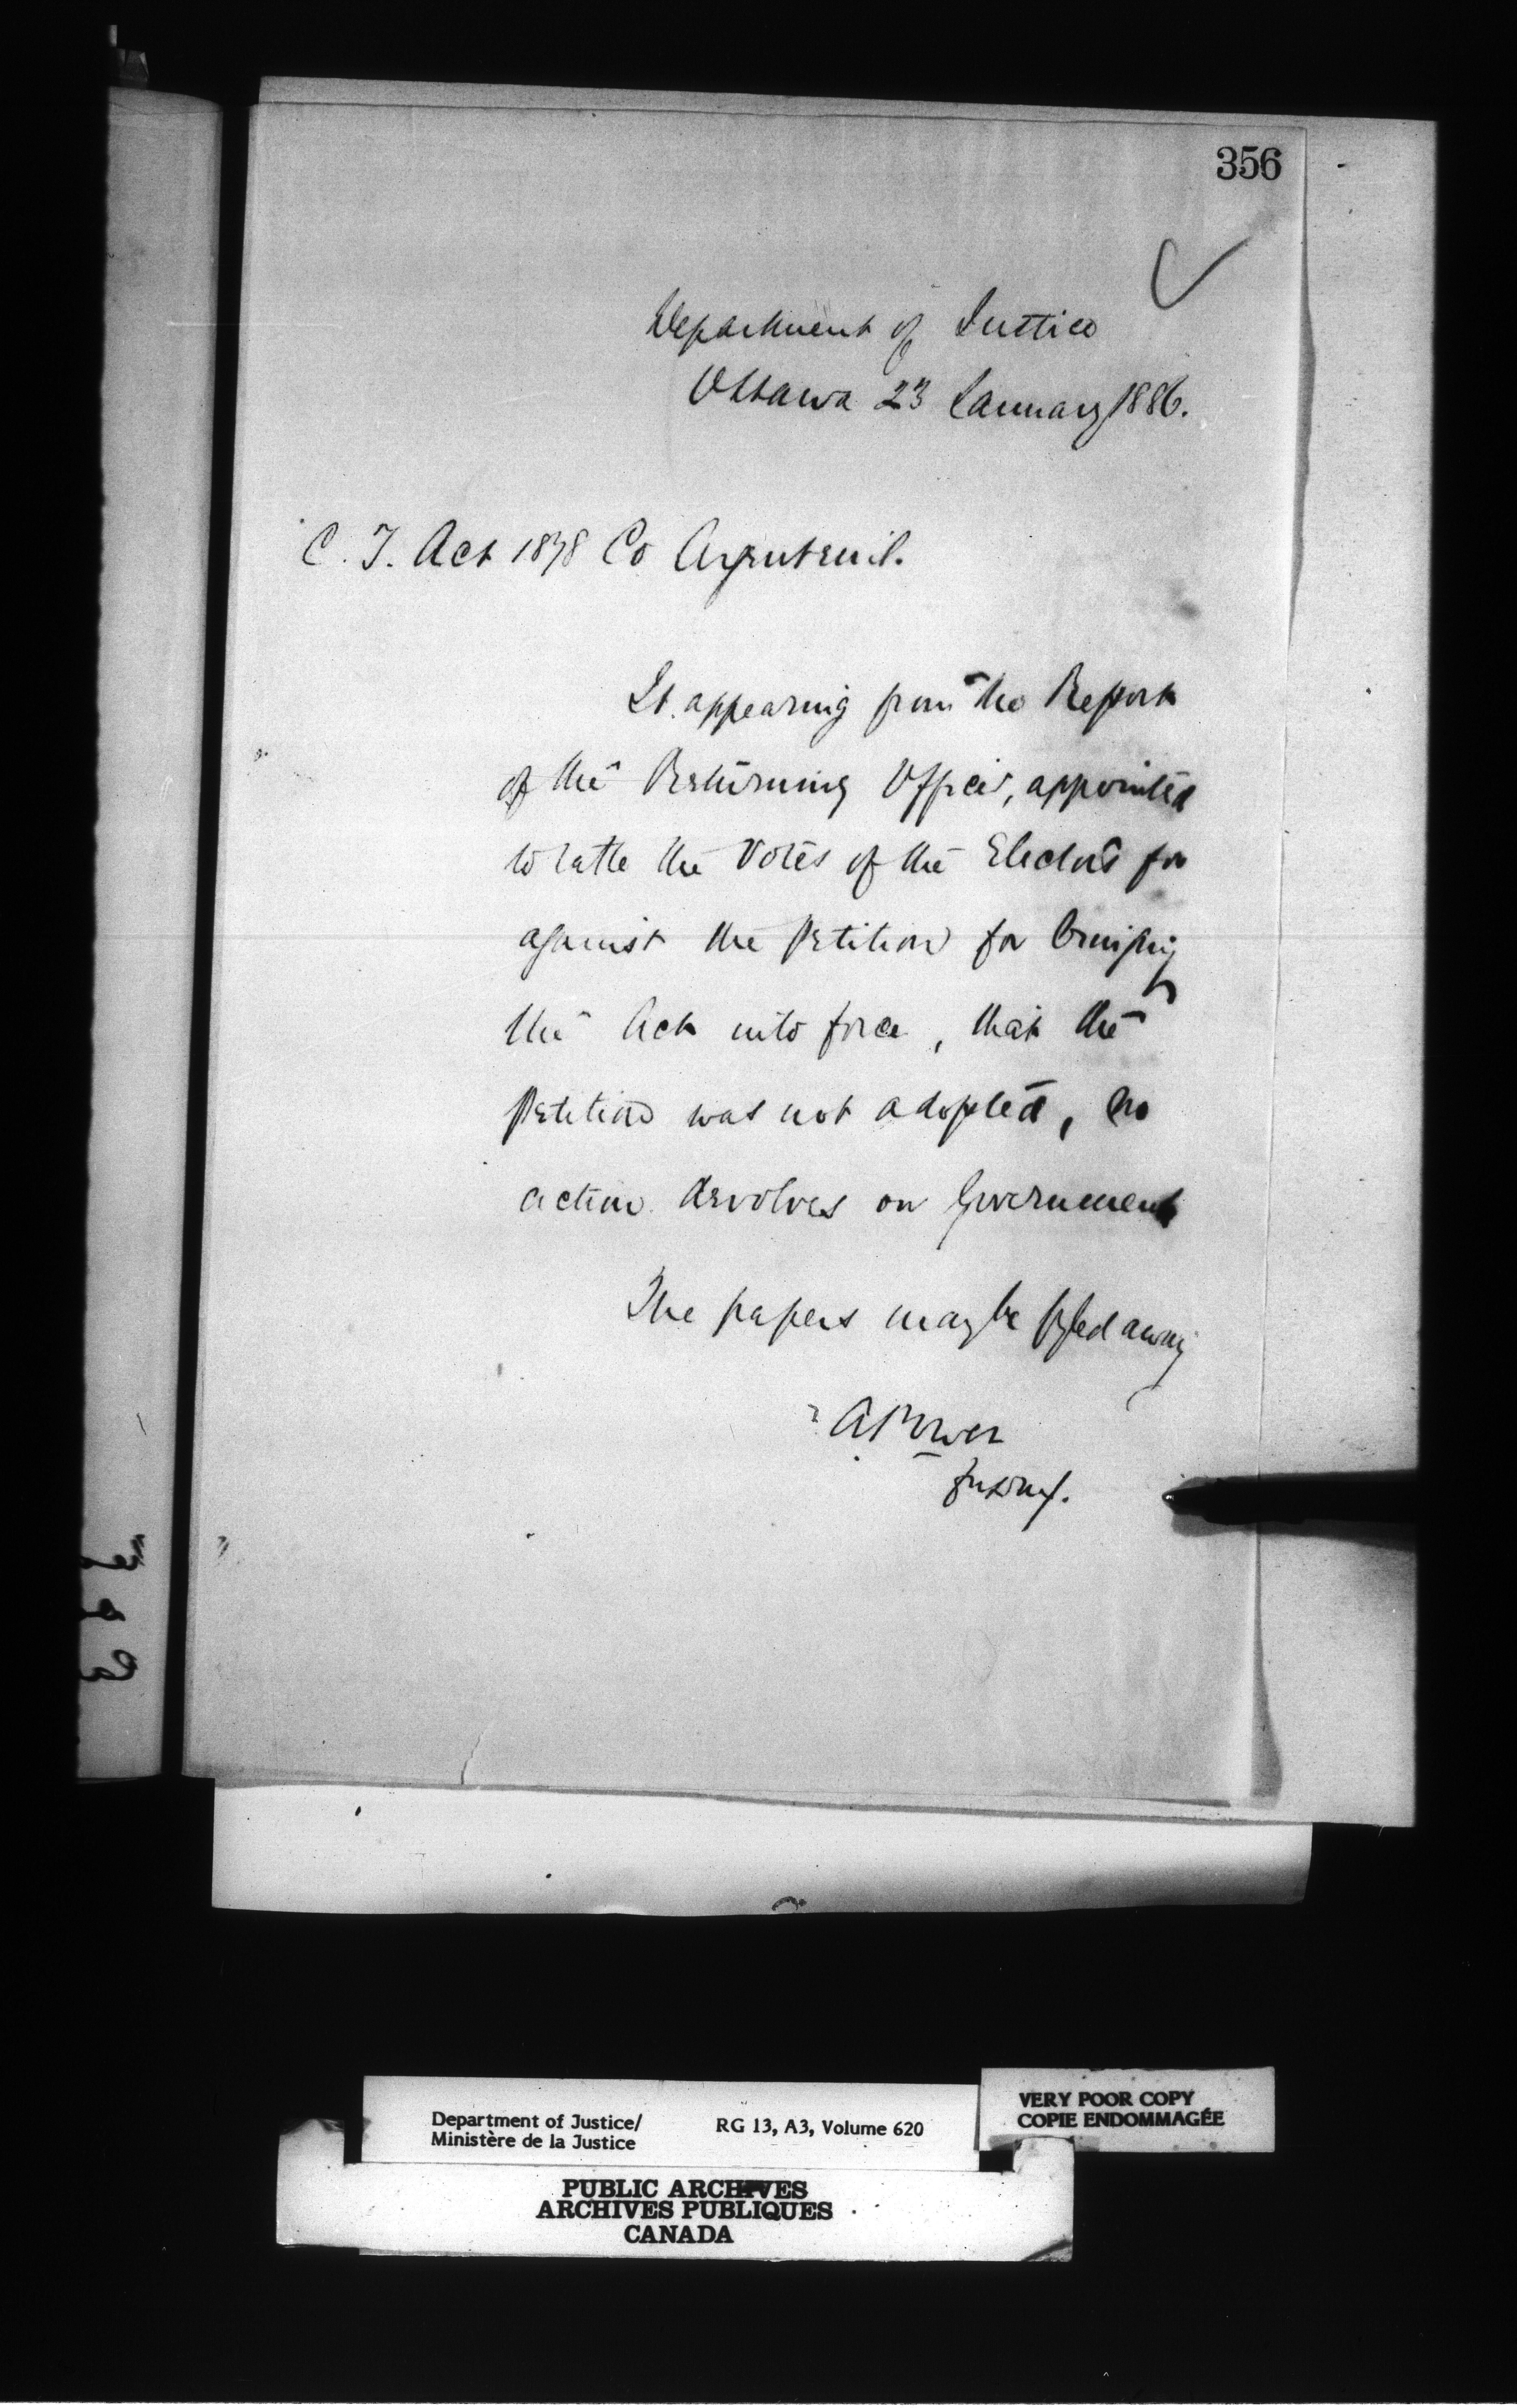 356
Department of Justice
Ottawa 23 January 1886.
C. T. Act 1878 Co Argenteuil.
It appearing from the Report
of the Returning Officer, appointed
to take the Votes of the Electors for
against the Petition for bringing
the Act into force, that the
Petition was not adopted, no
action devolves on Government
The papers may be fyled away
A Power
for D M J.
Department of Justice/
Ministère de la Justice
RG 13, A3, Volume 620
VERY POOR COPY
COPIE ENDOMMAGÉE
PUBLIC ARCHIVES
ARCHIVES PUBLIQUES
CANADA